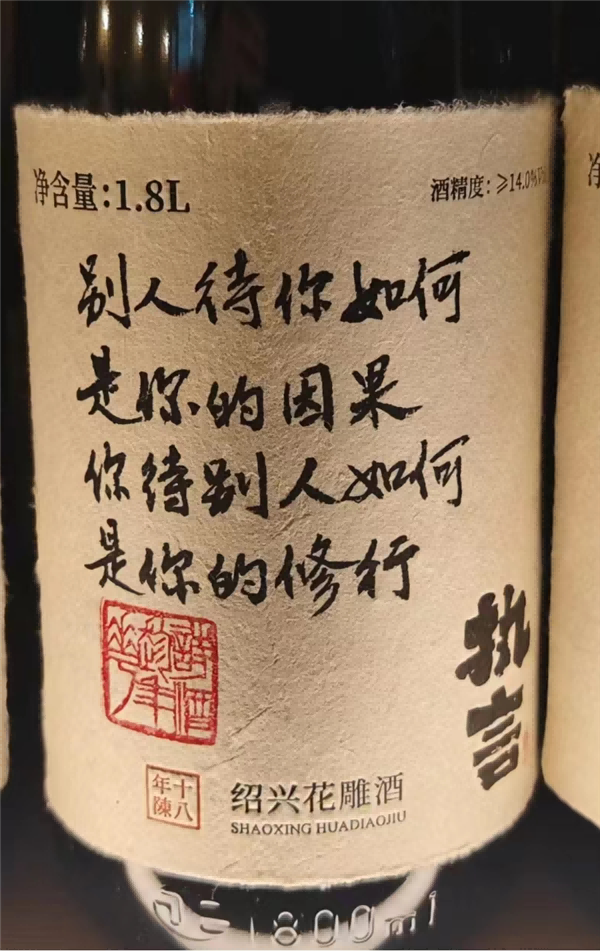 净含量:1.8L
酒精度:≥14.0%Vol
别人待你如何
是你的因果
你待别人如何
是你的修行
执言
诗酒
年华
十八
年陳
绍兴花雕酒
SHAOXING HUADIAOJIU
1800ml
净